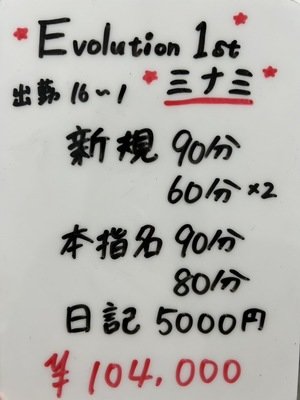 Evolution 1st
出勤 16~1 三ナ三
新規 90分
60分×2
本指名 90分
80分
日記 5000円
¥104,000